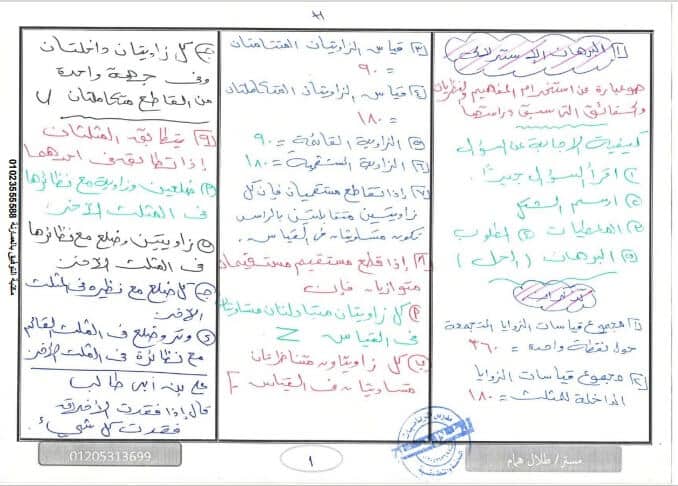 ١ البرهان الاستدلالى
هو عبارة عن استخدام المفاهيم والنظريات
والحقائق التى سبق دراستها
كيفية الإجابة عن السؤال
١ اقرأ السؤال جيدًا
٢ ارسم الشكل
٣ المعطيات ٤ المطلوب
٥ البرهان (الحل)
تذكر أن
١ مجموع قياسات الزوايا المتجمعة
حول نقطة واحدة = ٣٦٠
٢ مجموع قياسات الزوايا
الداخلة للمثلث = ١٨٠
٣ قياس الزاويتان المتتامتان
= ٩٠
٤ قياس الزاويتان المتكاملتان
= ١٨٠
٥ الزاوية القائمة = ٩٠
٦ الزاوية المستقيمة = ١٨٠
٧ إذا تقاطع مستقيمان فإن كل
زاويتين متقابلتين بالرأس
تكون متساويتان فى القياس
٨ إذا قطع مستقيم مستقيمان
متوازيان فإن
٩ كل زاويتان متبادلتان متساويتان
فى القياس Z
ب كل زاويتان متناظرتان
متساويتان فى القياس F
ج كل زاويتان داخلتان
وفى جهة واحدة
من القاطع متكاملتان U
٩ يتطابق المثلثان
إذا تطابق فى أحدهما
ضلعين وزاوية مع نظائرها
فى المثلث الآخر
ب زاويتين وضلع مع نظائرها
فى المثلث الآخر
ج كل ضلع مع نظيره فى المثلث
الآخر
د وتر وضلع فى المثلث القائم
مع نظائره فى المثلث الآخر
على بن أبى طالب
قال إذا فقدت الأخلاق
فقدت كل شىء
01023555588
01205313699
١
مستر / طلال همام